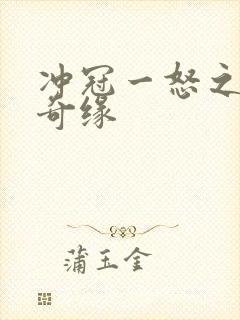 冲冠一怒之
奇缘
蒲玉金